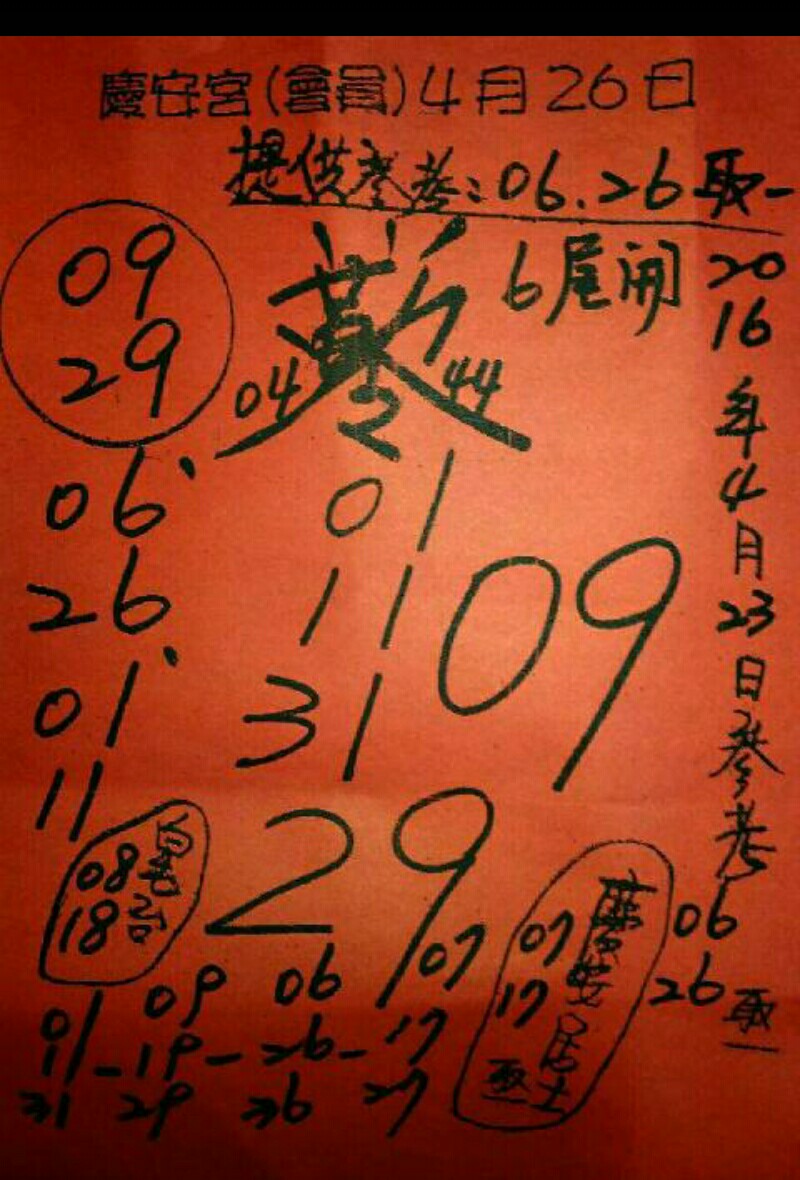 慶安宮(會員)4月26日
提供參考:06.26取一
6尾開
09
29
04 2 44
06
26
01
11
01
11
31
09
29
08
18
07
17
慶安居士
取一
2016年4月23日參考
06
26取一
01 09 06 07
11-19-26-17
31 29 36 27